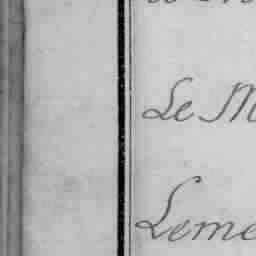 Le M
Leme